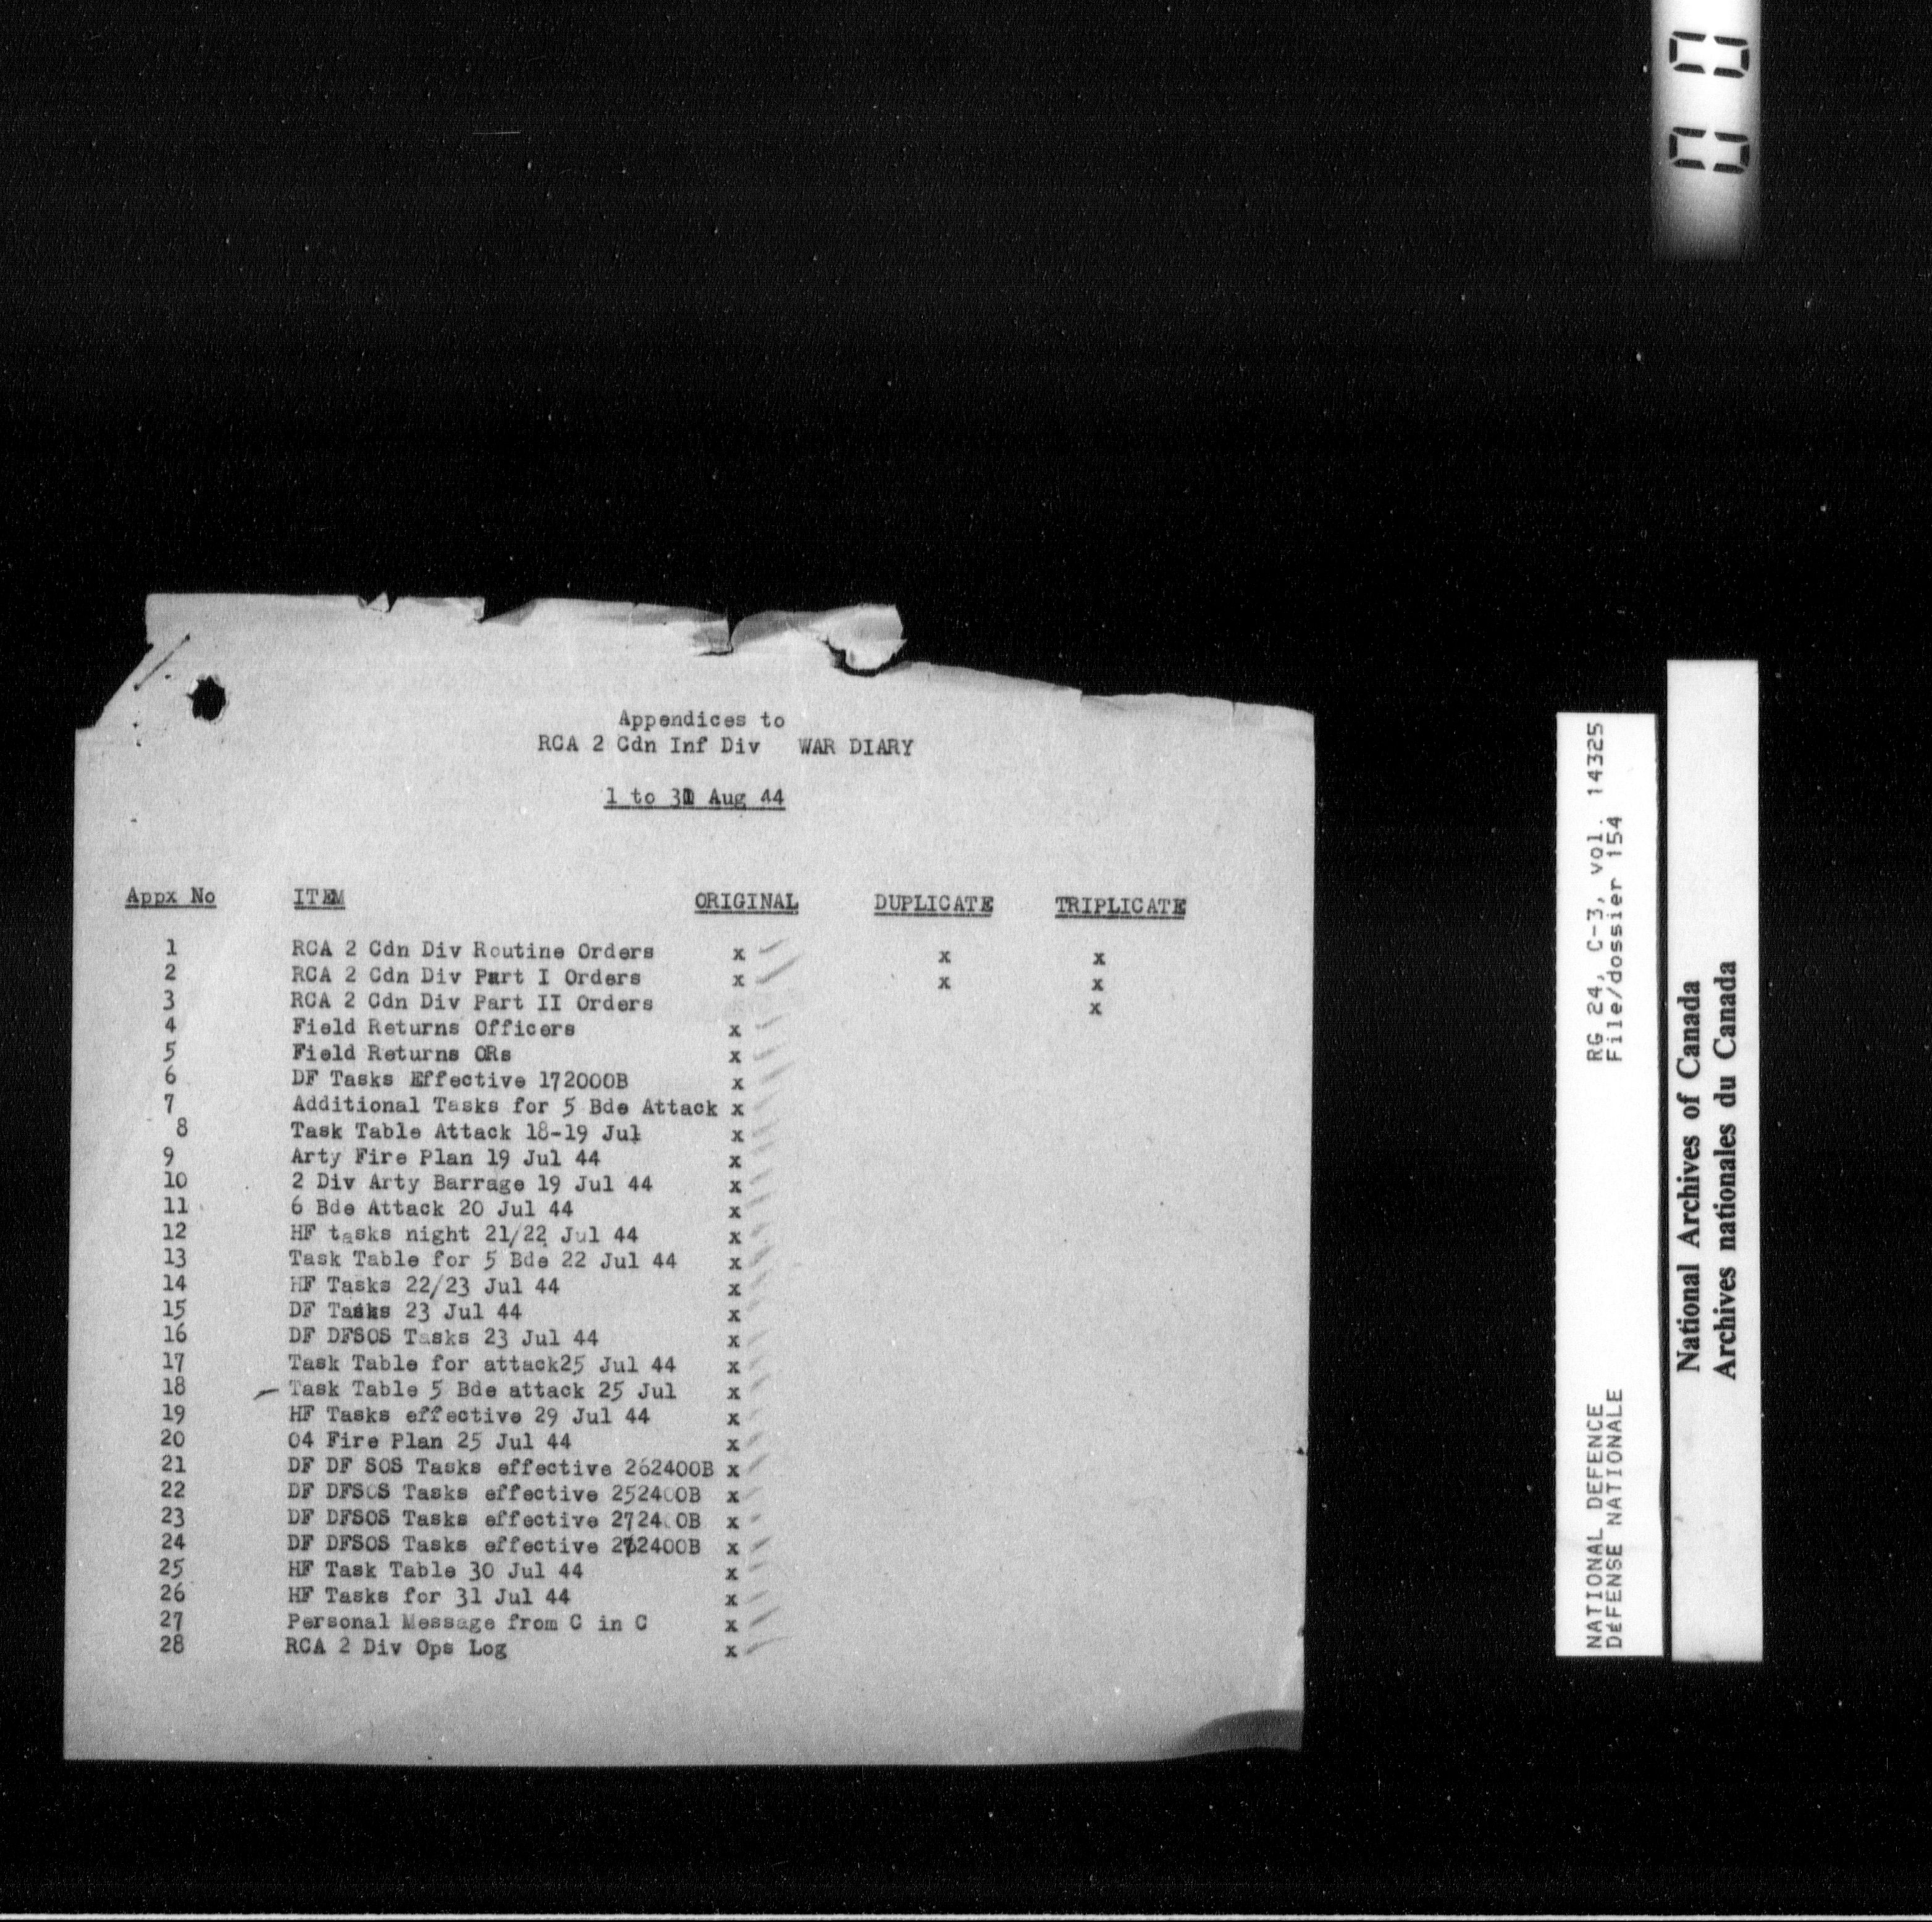 Appendices to
RCA 2 Cdn Inf Div WAR DIARY
1 to 31 Aug 44
Appx No ITEM ORIGINAL DUPLICATE TRIPLICATE
1 RCA 2 Cdn Div Routine Orders x x x
2 RCA 2 Cdn Div Part I Orders x x x
3 RCA 2 Cdn Div Part II Orders x
4 Field Returns Officers x
5 Field Returns ORs x
6 DF Tasks Effective 172000B x
7 Additional Tasks for 5 Bde Attack x
8 Task Table Attack 18-19 Jul x
9 Arty Fire Plan 19 Jul 44 x
10 2 Div Arty Barrage 19 Jul 44 x
11 6 Bde Attack 20 Jul 44 x
12 HF tasks night 21/22 Jul 44 x
13 Task Table for 5 Bde 22 Jul 44 x
14 HF Tasks 22/23 Jul 44 x
15 DF Tasks 23 Jul 44 x
16 DF DFSOS Tasks 23 Jul 44 x
17 Task Table for attack25 Jul 44 x
18 Task Table 5 Bde attack 25 Jul x
19 HF Tasks effective 29 Jul 44 x
20 04 Fire Plan 25 Jul 44 x
21 DF DF SOS Tasks effective 262400B x
22 DF DFSOS Tasks effective 252400B x
23 DF DFSOS Tasks effective 272400B x
24 DF DFSOS Tasks effective x
25 HF Task Table 30 Jul 44 x
26 HF Tasks for 31 Jul 44 x
27 Personal Message from C in C x
28 RCA 2 Div Ops Log x
NATIONAL DEFENCE RG 24, C-3, vol. 14325
DéFENSE NATIONALE File/dossier 154
National Archives of Canada
Archives nationales du Canada